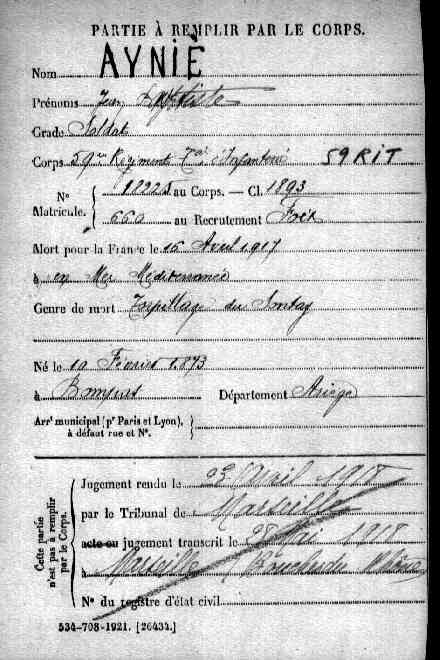 PARTIE À REMPLIR PAR LE CORPS.
Nom AYNIÈ
Prénoms Jean Baptiste
Grade Soldat
Corps 59me Régiment Tal d'Infanterie 59 RIT
N° Matricule. au Corps. — Cl. 1893
660 au Recrutement Foix
Mort pour la France le 16 Avril 1917
à en Mer Méditerranée
Genre de mort Torpillage du Sontay
Né le 10 Février 1873
à Bompas Département Ariège
Arrt municipal (pr Paris et Lyon), à défaut rue et N°.
Cette partie n'est pas à remplir par le Corps.
Jugement rendu le 23 Avril 1918
par le Tribunal de Marseille
acte ou jugement transcrit le 28 Mai 1918
à Marseille Bouches du Rhône
N° du registre d'état civil
534-708-1921. [26434.]